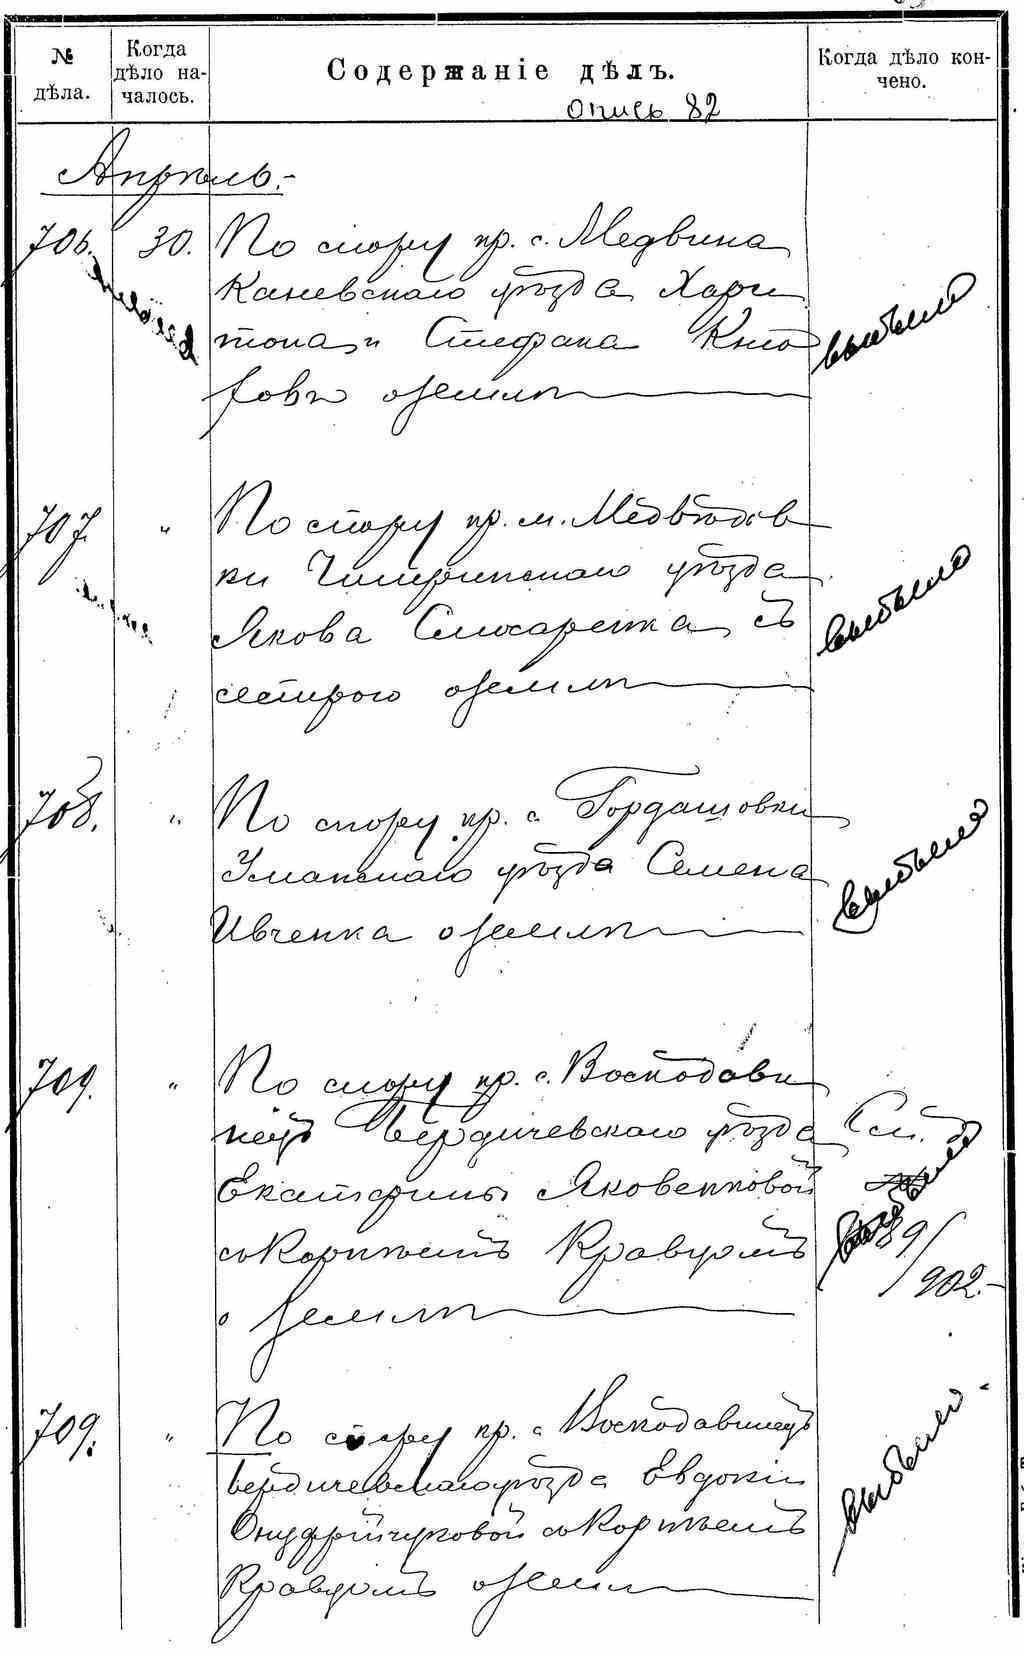 № дѣла.
Когда дѣло на-чалось.
Содержаніе дѣлъ.
Когда дѣло кон-чено.
опись 82
Апрѣль.-
706. 30. По спору кр. с. Медвина
Каневскаго уѣзда Хари
тона и Стефана
о землѣ
выбыло
707. " По спору кр. м. Медвѣдов
ки Чигиринскаго уѣзда
Якова Слюсаренка съ
сестрою о землѣ
выбыло
708. " По спору кр. с. Гордашовки
Уманскаго уѣзда Семена
Ивченка о землѣ
выбыло
709. " По спору кр. с.
Бердичевскаго уѣзда См. д.
Екатерины Яковенковой
съ Корнѣемъ Кравцомъ 89/
о землѣ 902.-
выбыло
709. " По спору кр. с
Бердичевскаго уѣзда Евдокіи
Онуфрійчуковой съ Корнѣемъ
Кравцомъ о землѣ
выбыло